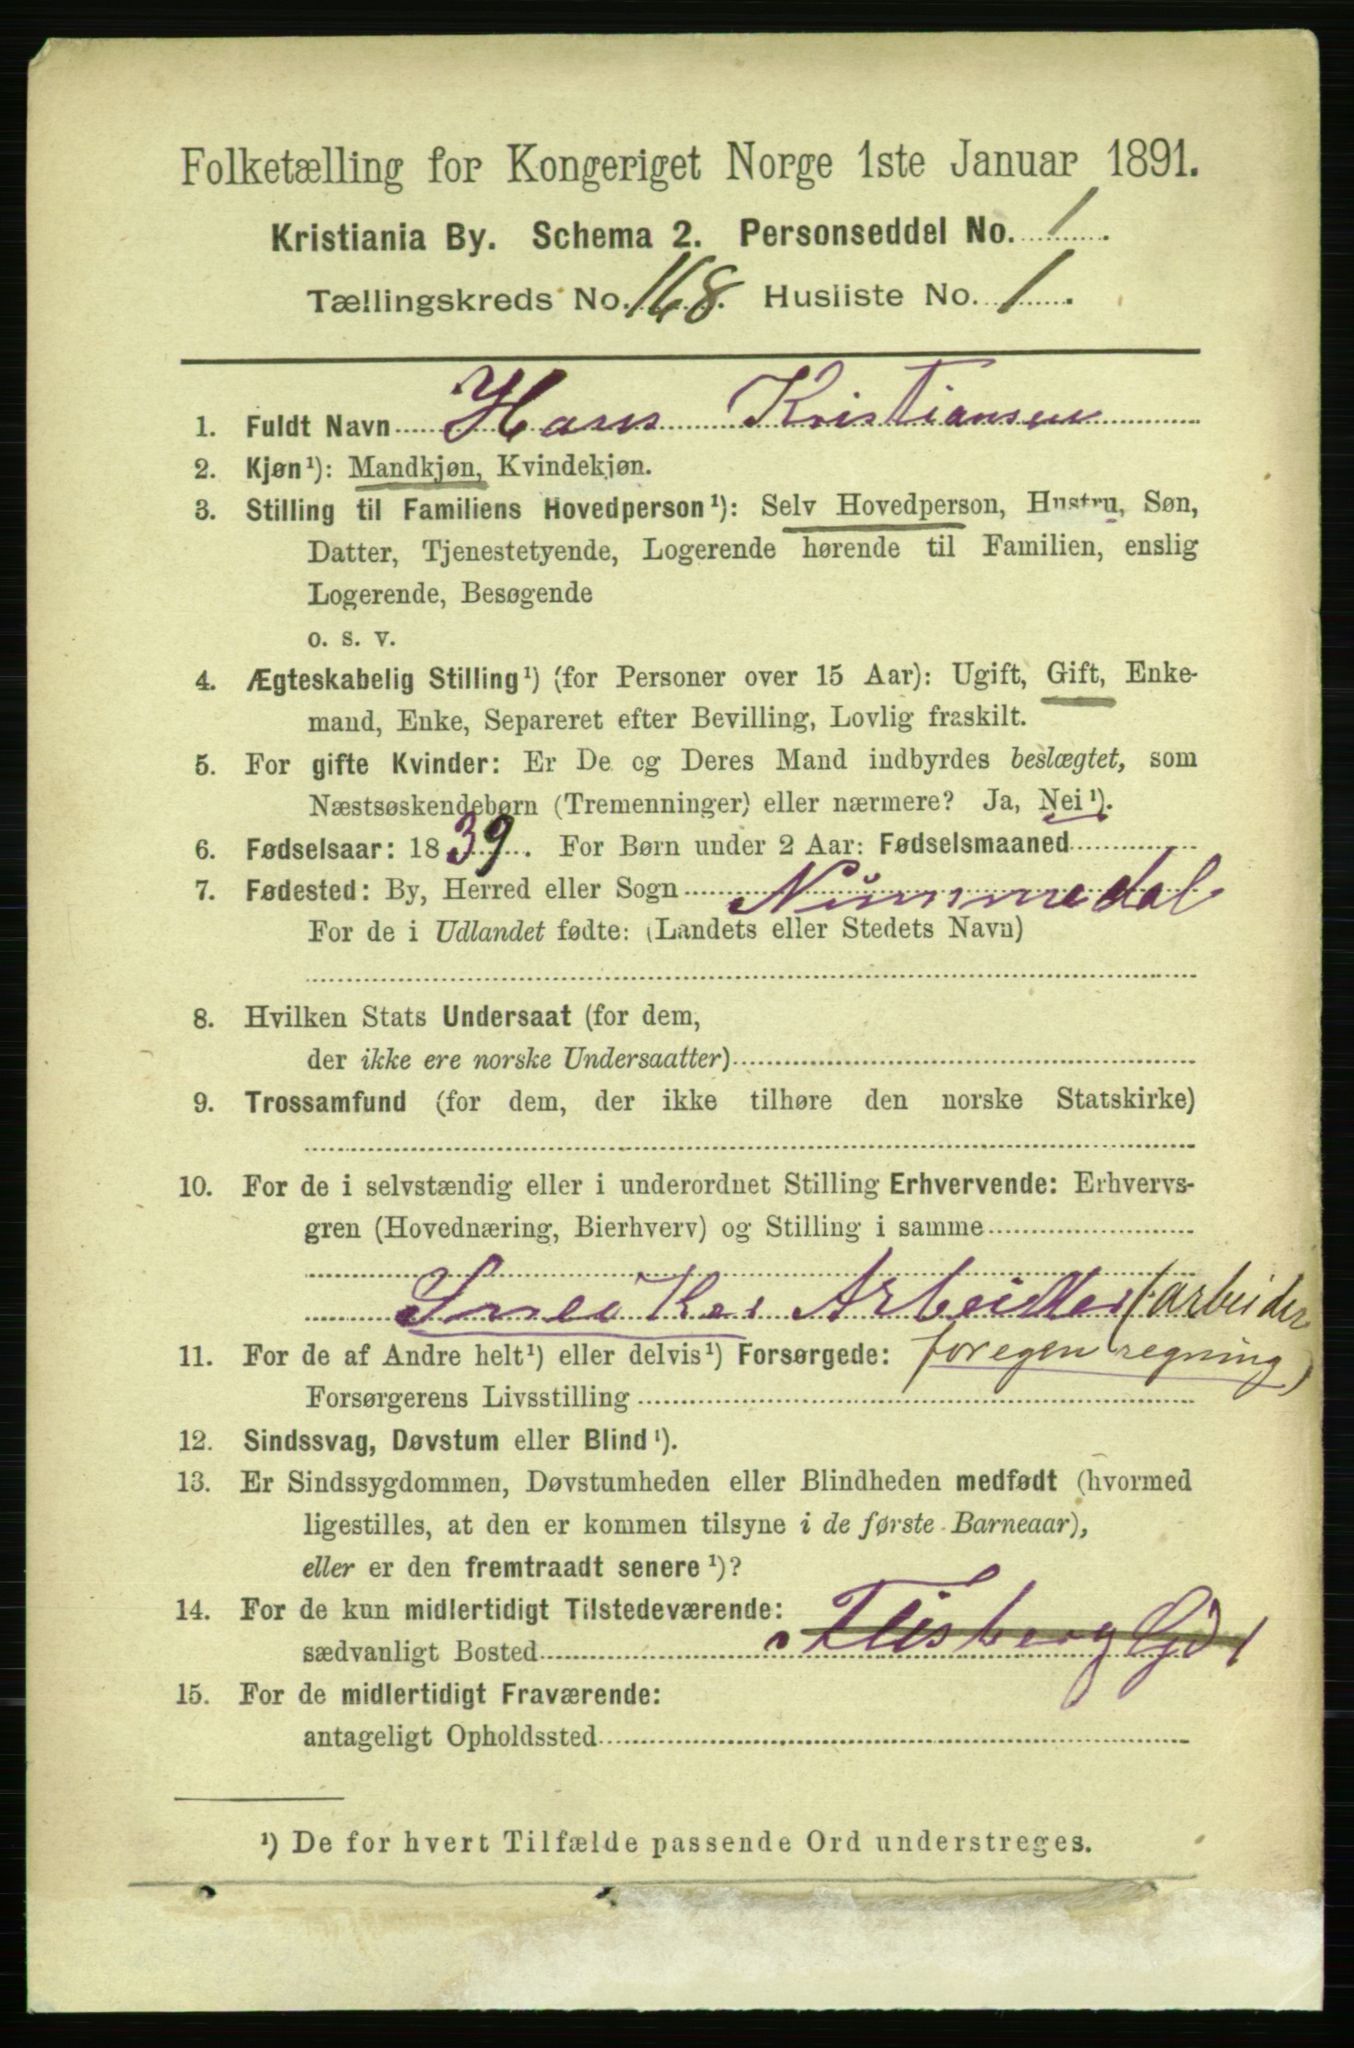 Folketælling for Kongeriget Norge 1ste Januar 1891.
Kristiania By. Schema 2. Personseddel No. 1.
Tællingskreds No. 168. Husliste No. 1.
1. Fuldt Navn Hans Kristiansen
2. Kjøn¹): Mandkjøn, Kvindekjøn.
3. Stilling til Familiens Hovedperson¹): Selv Hovedperson, Hustru, Søn,
Datter, Tjenestetyende, Logerende hørende til Familien, enslig
Logerende, Besøgende
o. s. v.
4. Ægteskabelig Stilling¹) (for Personer over 15 Aar): Ugift, Gift, Enke-
mand, Enke, Separeret efter Bevilling, Lovlig fraskilt.
5. For gifte Kvinder: Er De og Deres Mand indbyrdes beslægtet, som
Næstsøskendebørn (Tremenninger) eller nærmere? Ja, Nei¹).
6. Fødselsaar: 1839. For Børn under 2 Aar: Fødselsmaaned
7. Fødested: By, Herred eller Sogn Nummedal
For de i Udlandet fødte: (Landets eller Stedets Navn)
8. Hvilken Stats Undersaat (for dem,
der ikke ere norske Undersaatter)
9. Trossamfund (for dem, der ikke tilhøre den norske Statskirke)
10. For de i selvstændig eller i underordnet Stilling Erhvervende: Erhvervs-
gren (Hovednæring, Bierhverv) og Stilling i samme
Sneoker Arbeider (arbeider
11. For de af Andre helt¹) eller delvis¹) Forsørgede: for egen regning)
Forsørgerens Livsstilling
12. Sindssvag, Døvstum eller Blind¹).
13. Er Sindssygdommen, Døvstumheden eller Blindheden medfødt (hvormed
ligestilles, at den er kommen tilsyne i de første Barneaar),
eller er den fremtraadt senere¹)?
14. For de kun midlertidigt Tilstedeværende:
sædvanligt Bosted Flisberg Gd 1
15. For de midlertidigt Fraværende:
antageligt Opholdssted
¹) De for hvert Tilfælde passende Ord understreges.